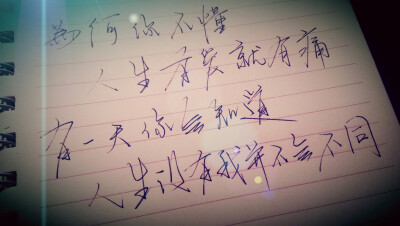 為何你不懂
人生有爱就有痛
有一天你会知道
人生没有我并不会不同